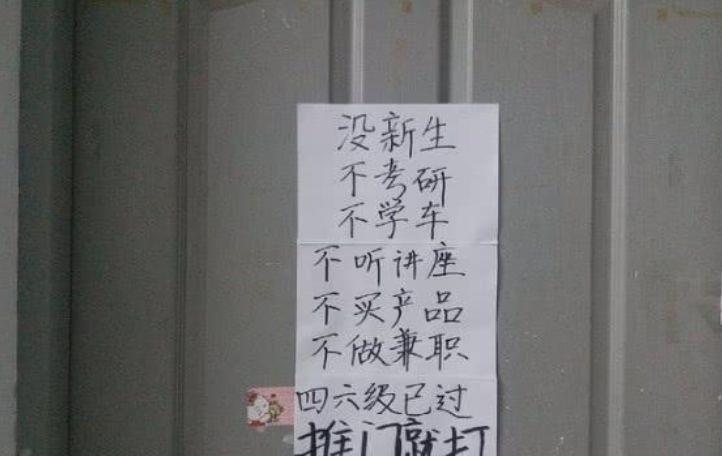 没新生
不考研
不学车
不听讲座
不买产品
不做兼职
四六级已过
推门就打